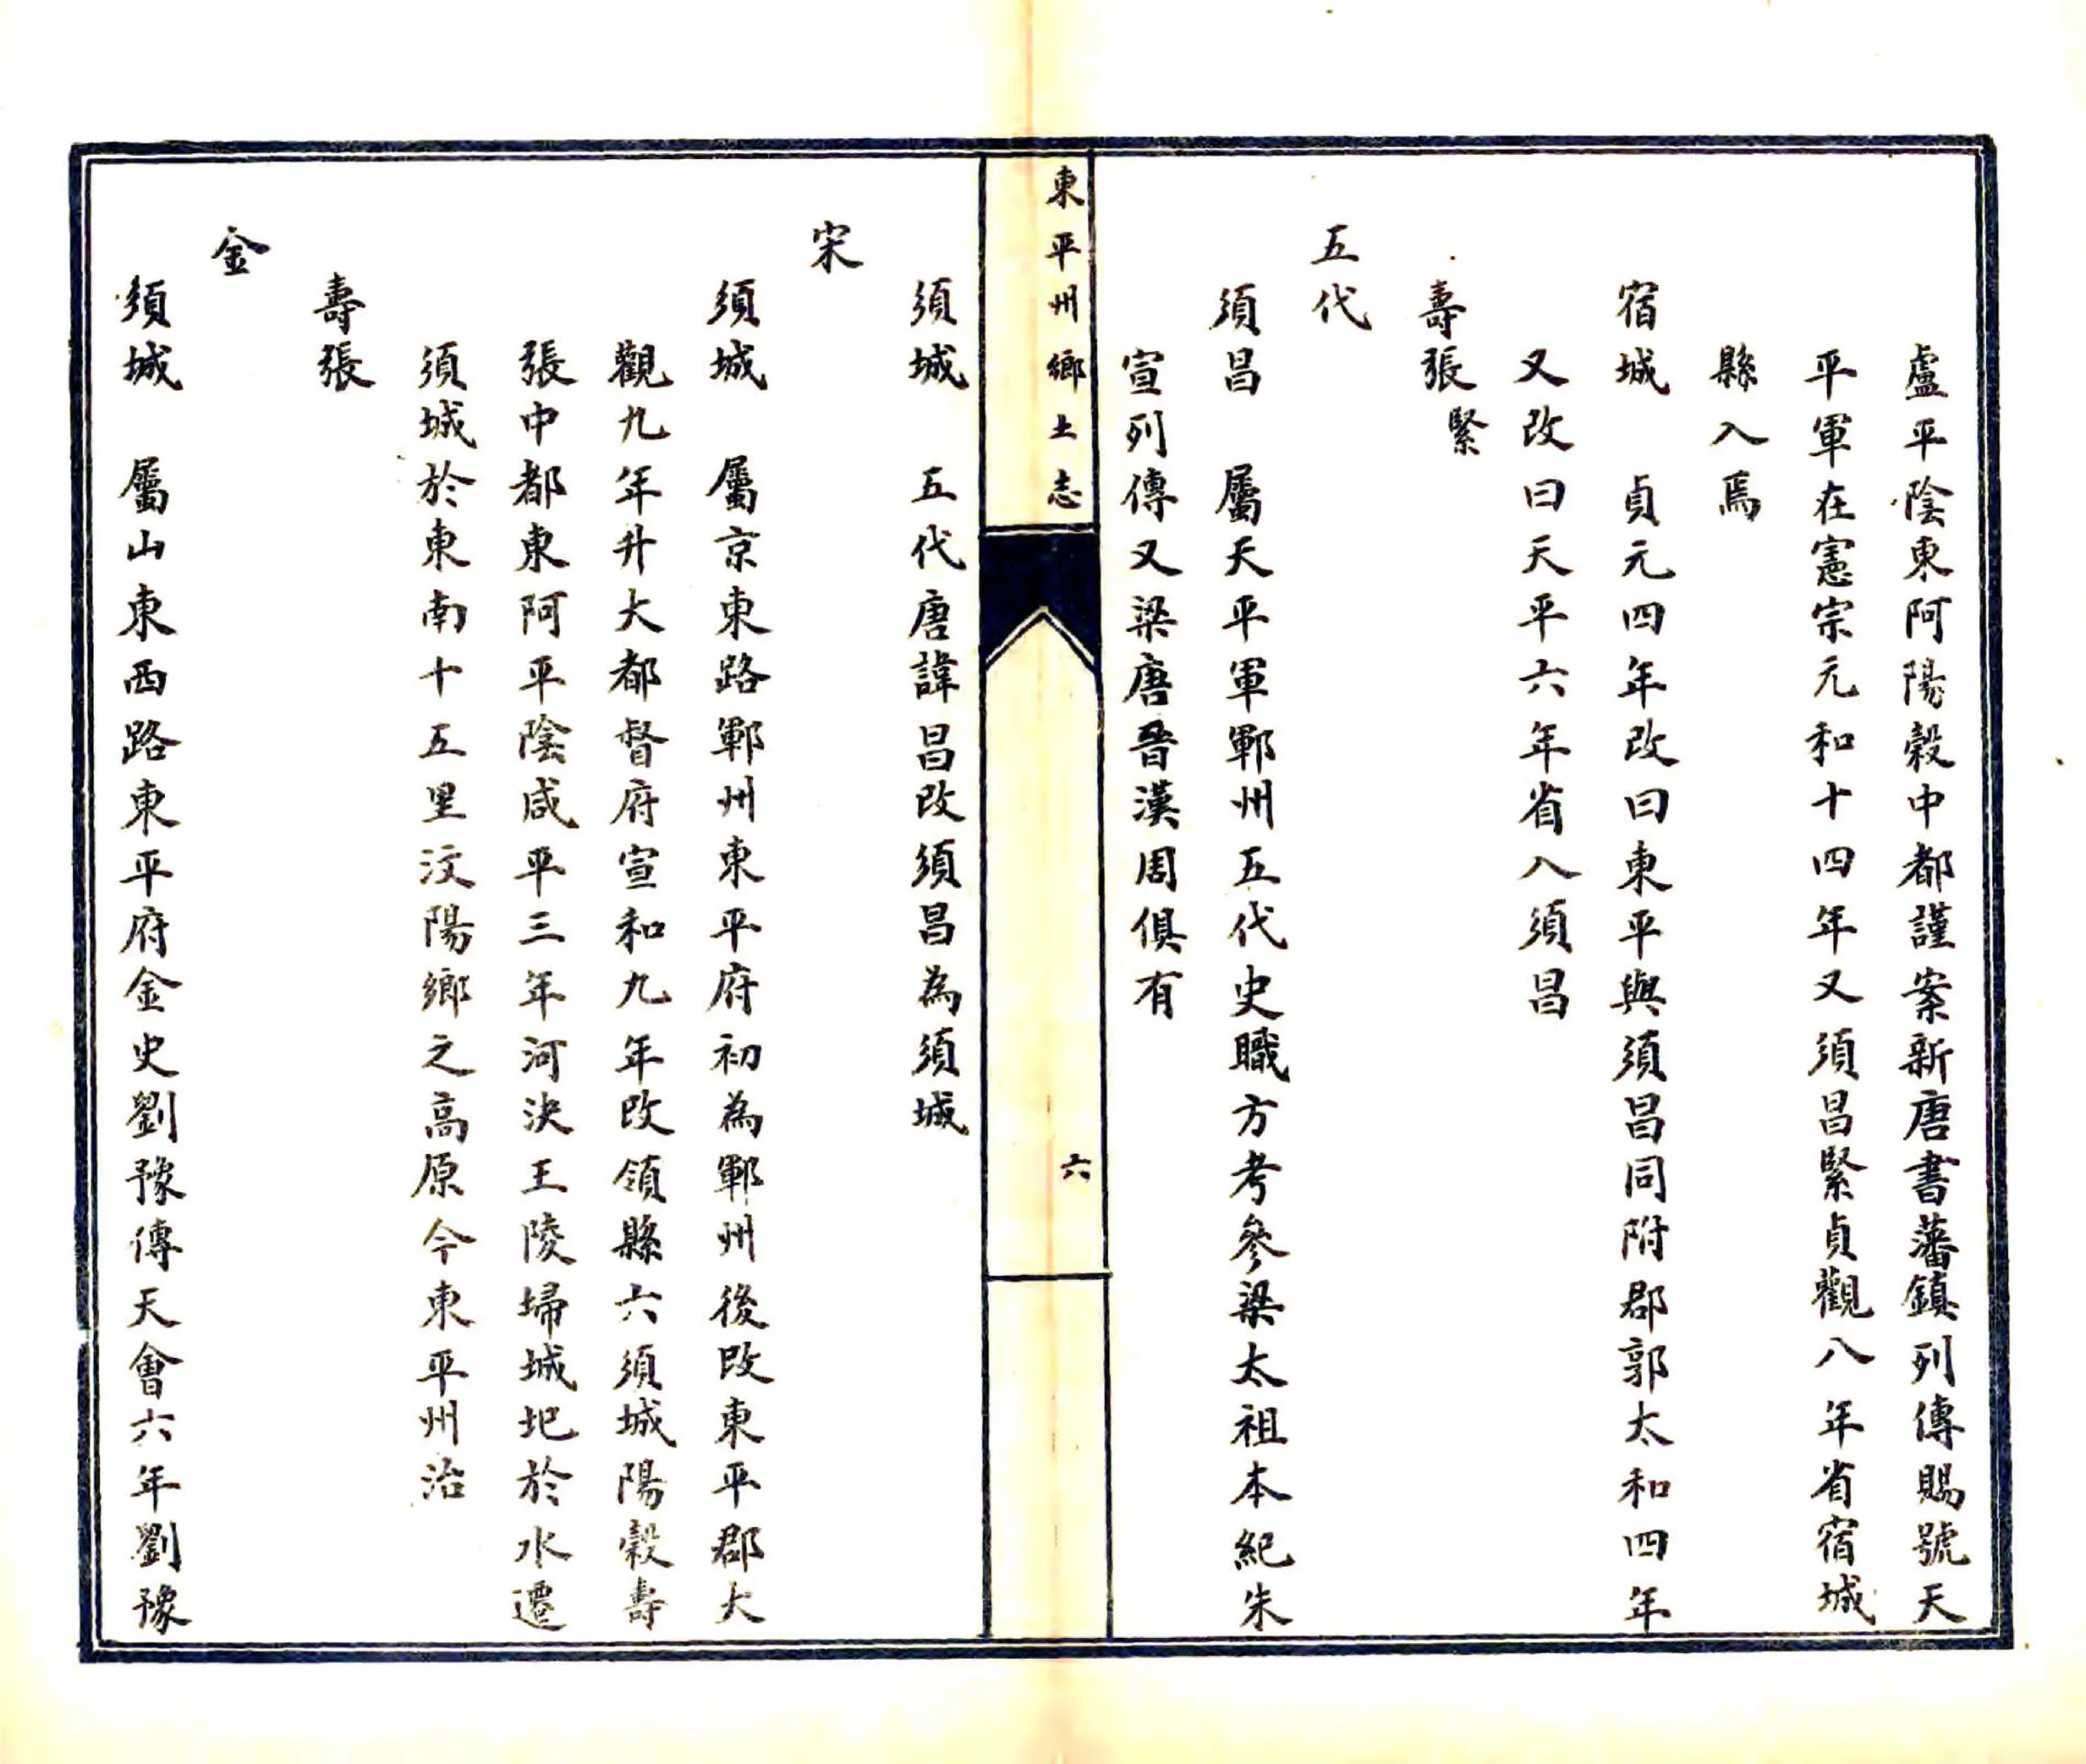 盧平陰東阿陽穀中都謹案新唐書藩鎮列傳賜號天
平軍在憲宗元和十四年又須昌緊貞觀八年省宿城
縣入焉
宿城　貞元四年改曰東平與須昌同附郡郭太和四年
又改曰天平六年省入須昌
壽張緊
五代
須昌　屬天平軍鄆州五代史職方考參梁太祖本紀朱
宣列傳又梁唐晉漢周俱有
東平州鄉土志
六
須城　五代唐諱昌改須昌為須城
宋
須城　屬京東路鄆州東平府初為鄆州後改東平郡大
觀九年升大都督府宣和九年改領縣六須城陽穀壽
張中都東阿平陰咸平三年河決王陵埽城圯於水遷
須城於東南十五里汶陽鄉之高原今東平州治
壽張
金
須城　屬山東西路東平府金史劉豫傳天會六年劉豫